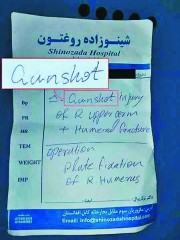 شینوزاده روغتون
Shinozada Hospital
Gunshot
Bp
Gunshot Injury
PR
of R upper arm
HR
+ Humeral fracture
TEM
operation
WEIGHT
plate fixation
IMP
of R Humerus
www.shinozadahospital.com